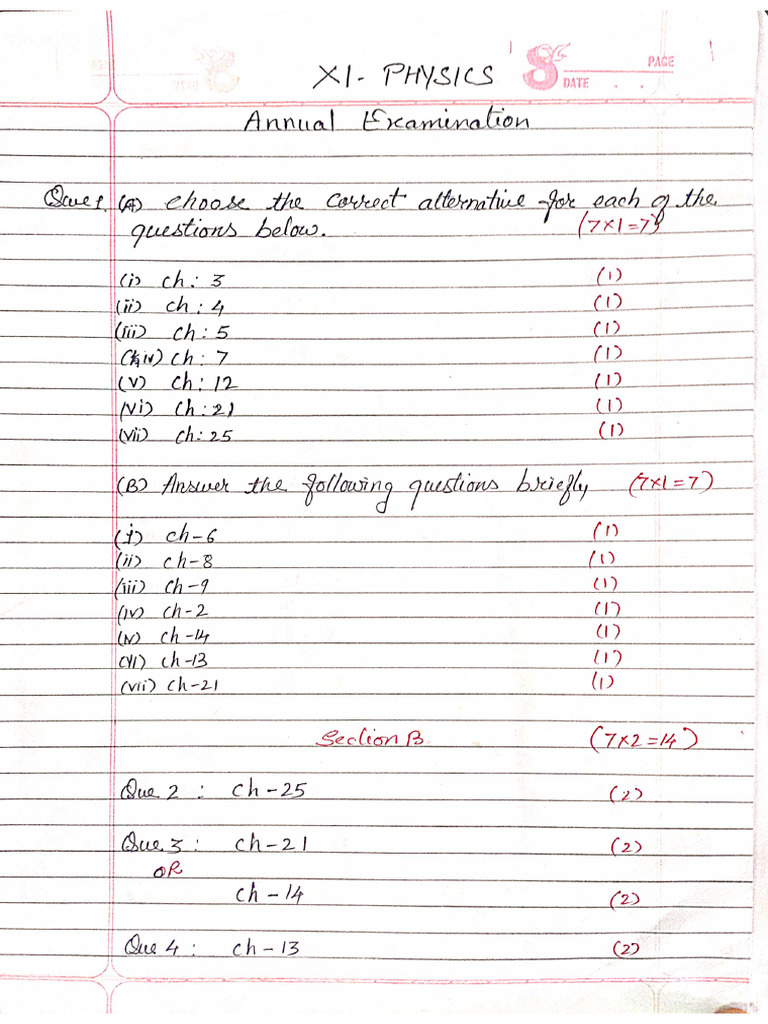 XI - PHYSICS
PAGE
DATE
Annual Examination
Que 1. (A) choose the correct alternative for each of the
questions below. (7×1=7)
(i) ch: 3 (1)
(ii) ch: 4 (1)
(iii) ch: 5 (1)
(iv) ch: 7 (1)
(v) ch: 12 (1)
(vi) ch: 21 (1)
(vii) ch: 25 (1)
(B) Answer the following questions briefly (7×1=7)
(i) ch-6 (1)
(ii) ch-8 (1)
(iii) ch-9 (1)
(iv) ch-2 (1)
(v) ch-14 (1)
(vi) ch-13 (1)
(vii) ch-21 (1)
Section B (7×2=14)
Que 2 : ch-25 (2)
Que 3 : ch-21 (2)
OR
ch-14 (2)
Que 4 : ch-13 (2)